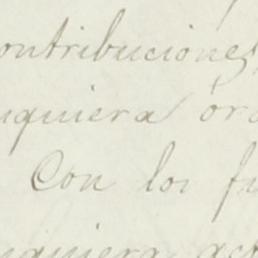 ontribuciones
uquiera ór
Con los fu
uquiera acc